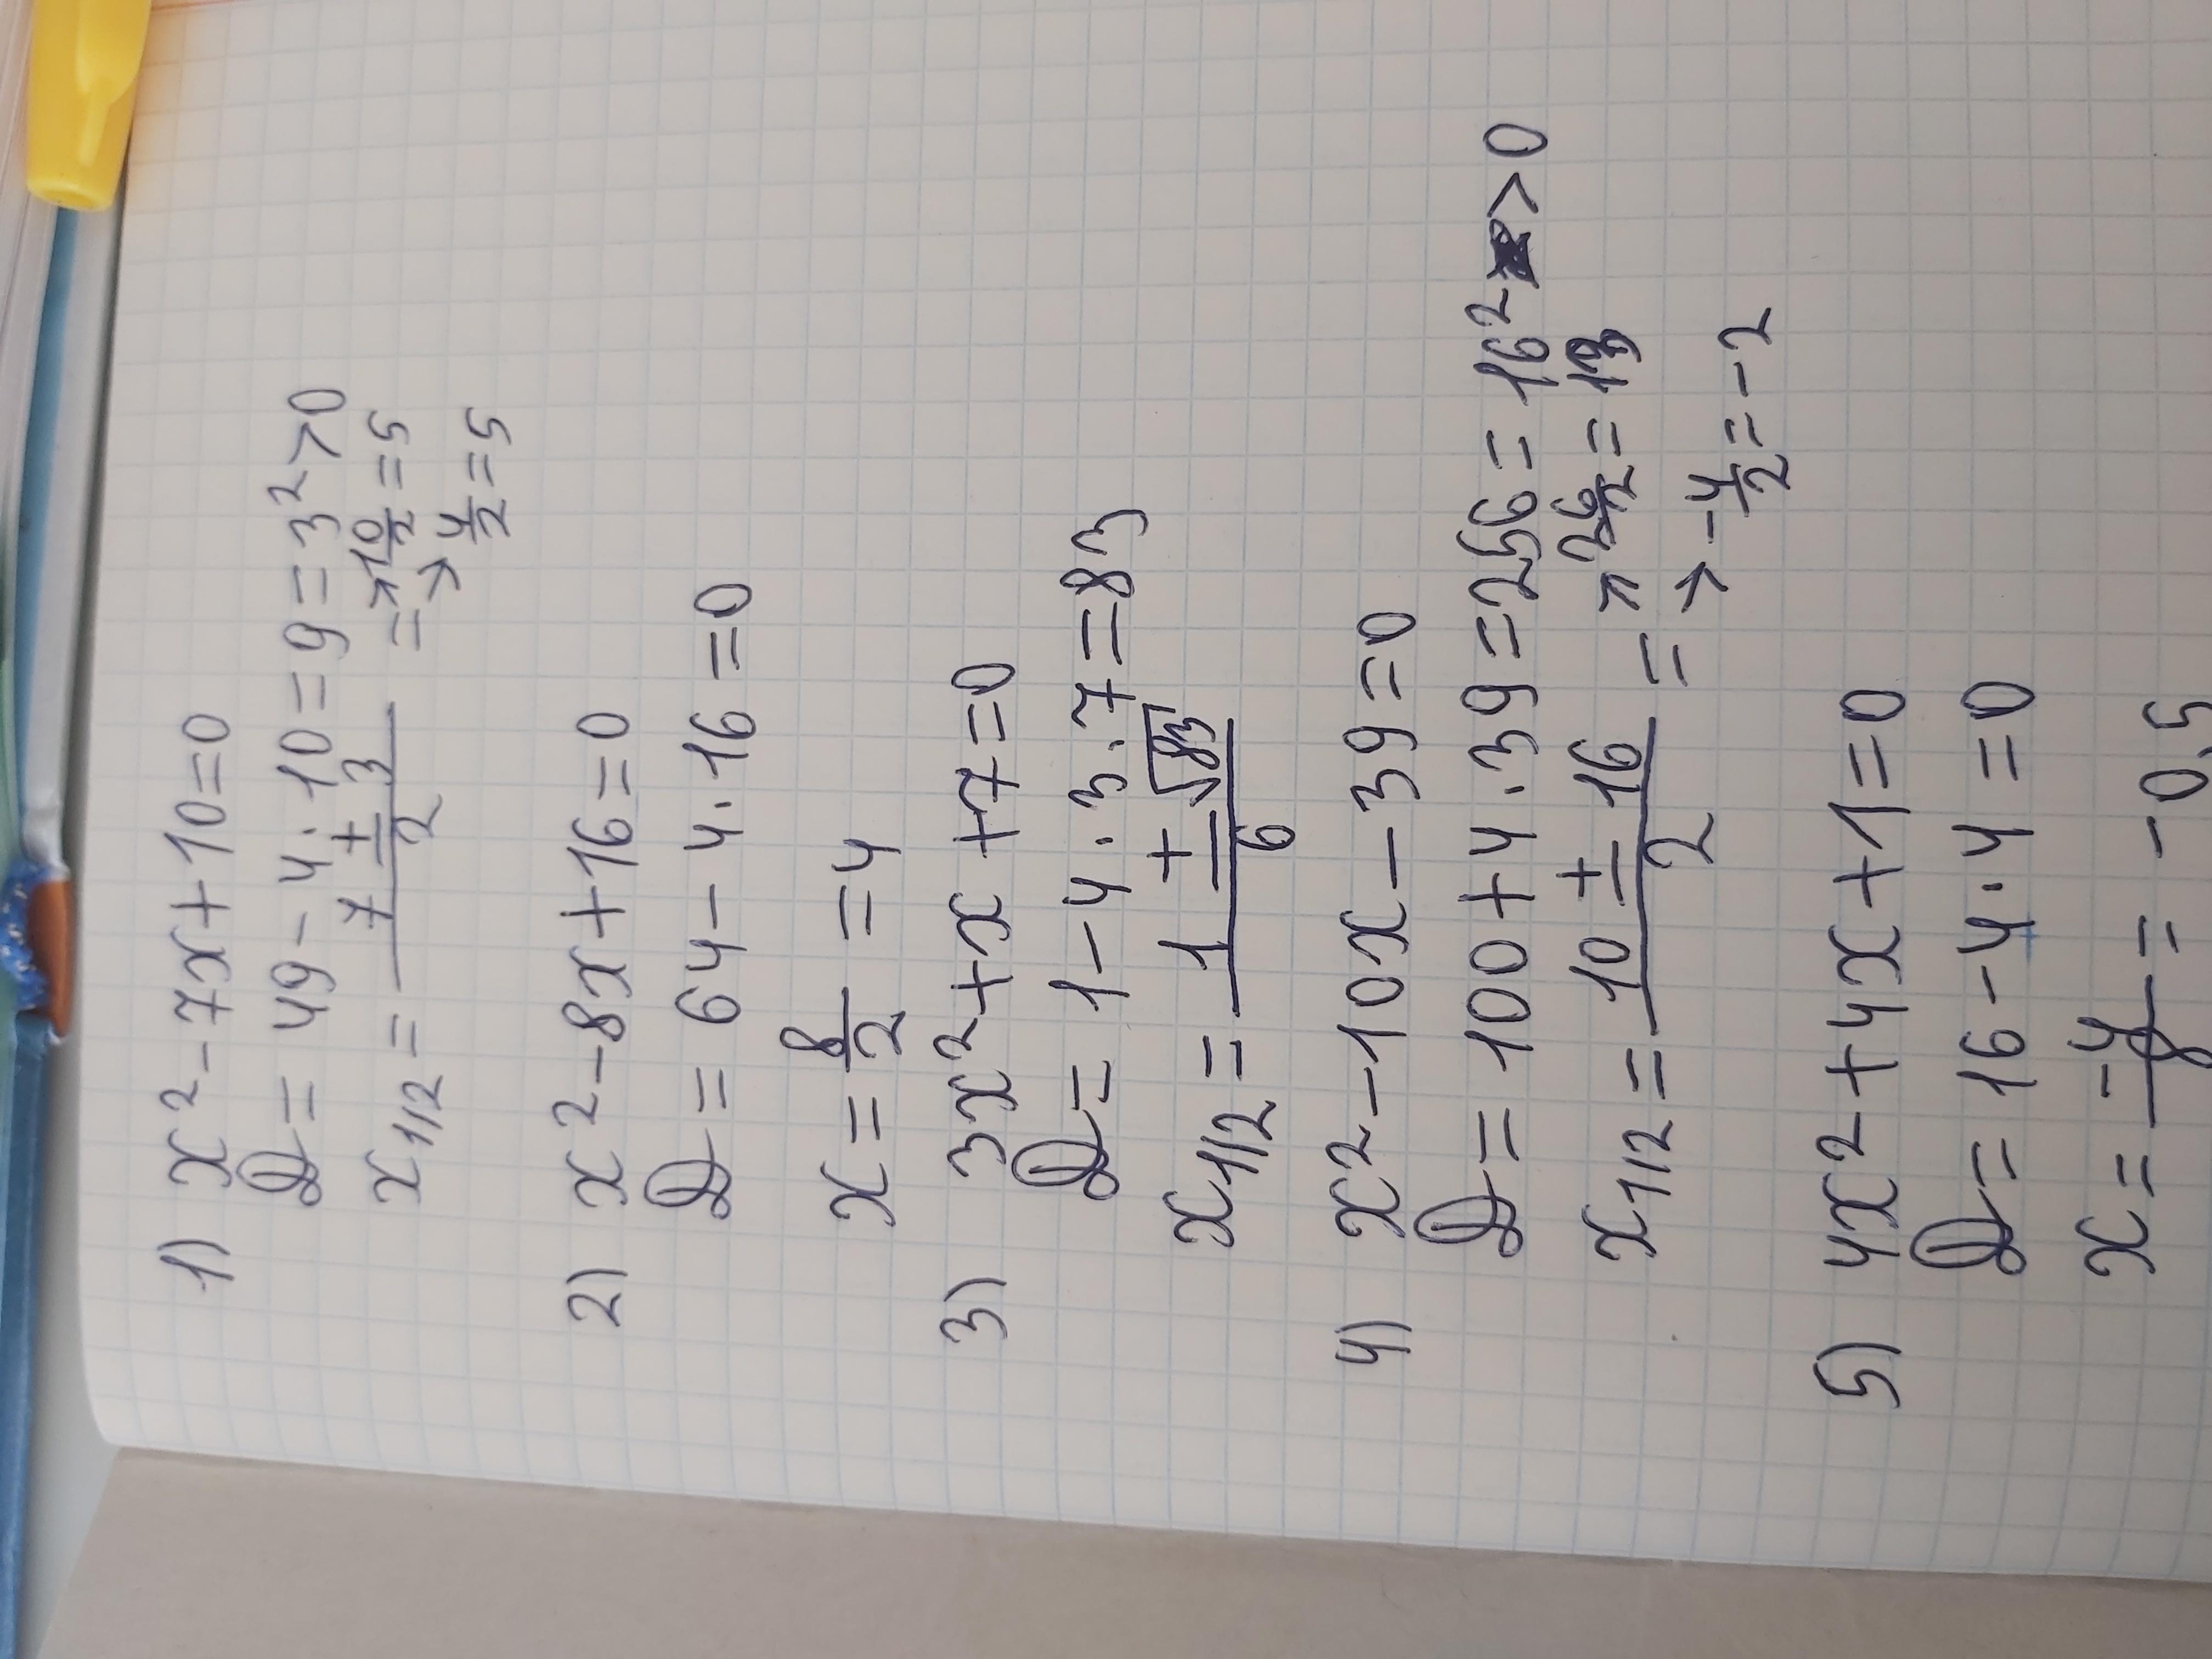 1) x² - 7x + 10 = 0
D = 49 - 4 · 10 = 9 = 3² > 0
x1/2 = (7 ± 3)/2 = → 10/2 = 5
→ 4/2 = 5
2) x² - 8x + 16 = 0
D = 64 - 4 · 16 = 0
x = 8/2 = 4
3) 3x² + x + 7 = 0
D = 1 - 4 · 3 · 7 = 83
x1/2 = (1 ± √83)/6
4) x² - 10x - 39 = 0
D = 100 + 4 · 39 = 256 = 16² > 0
x1/2 = (10 ± 16)/2 = ↗ 26/2 = 13
→ -4/2 = -2
5) 4x² + 4x + 1 = 0
D = 16 - 4 · 4 = 0
x = -4/8 = -0,5